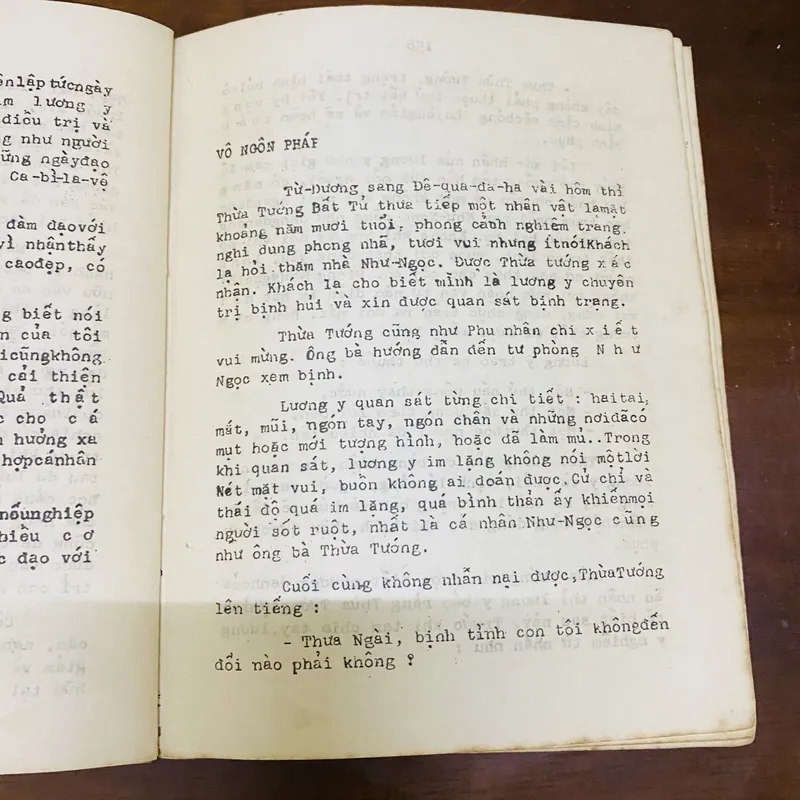 ênlập tứcngày
m lương y
điều trị và
g như người
ững ngàyđạo
Ca-bì-la-vệ
đàm đạovới
vì nhậnthấy
caođẹp, có
g biết nói
n của tôi
icũngkhông
cải thiện
Quả thật
c cho cá
h hưởng xa
hợpcánhân
nốunghiệp
hiều cơ
c đạo với
VÔ NGÔN PHÁP
Từ-Dương sang Đê-qua-đa-ha vài hôm thì
Thừa Tướng Bất Tủ thưa tiếp một nhân vật lạmặt
khoảng năm mươi tuổi, phong cảnh nghiêm trang,
nghi dung phong nhã, tươi vui nhưng ítnóiKhách
lạ hỏi thăm nhà Như-Ngọc. Được Thừa tướng xác
nhận. Khách lạ cho biết mình là lương y chuyên
trị bịnh hủi và xin được quan sát bịnh trạng.
Thừa Tướng cũng như Phu nhân chi xiết
vui mừng. Ông bà hướng dẫn đến tư phòng Như
Ngọc xem bịnh.
Lương y quan sát từng chi tiết : haitai,
mắt, mũi, ngón tay, ngón chân và những nơiđãcó
mụt hoặc mới tượng hình, hoặc đã làm mủ..Trong
khi quan sát, lương y im lặng không nói mộtlời
Nét mặt vui, buồn không ai đoán được.Cử chỉ và
thái độ quá im lặng, quá bình thản ấy khiếnmọi
người sốt ruột, nhất là cá nhân Như-Ngọc cũng
như ông bà Thừa Tướng.
Cuối cùng không nhẫn nại được,ThừaTướng
lên tiếng :
- Thưa Ngài, bịnh tình con tôi khôngđến
đổi nào phải không ?